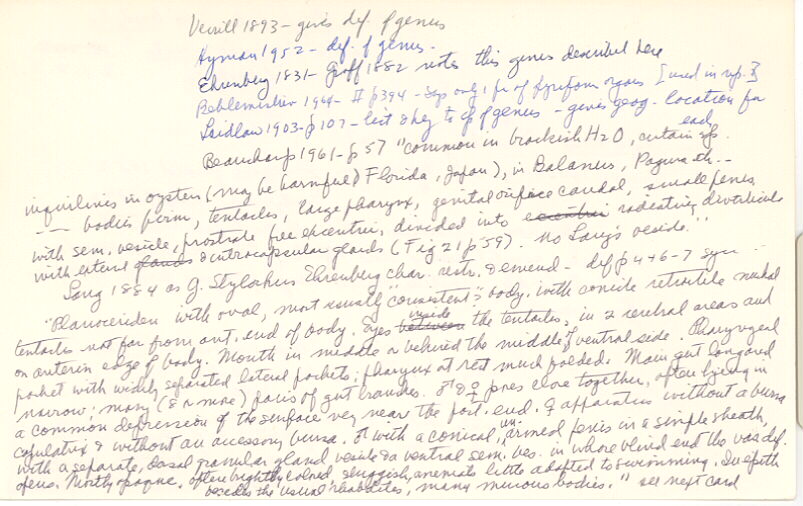 Verrill 1893 - gives def. of genus
Hyman 1952 - def. of genus -
Ehrenberg 1831 - Graff 1882 notes this genus described here
1964 - # p394 - says only 1 pr of pyriform organs [used in rep.?]
Laidlaw 1903 - p 107 - list & key to spp of genus - gives geog. location for each
Beauchamp 1961 - p 57 "common in brackish H2O, certain spp.
inquilines in oysters (may be harmful) Florida, Japan), in Balanus, Pagurus etc. --
-- bodies firm, tentacles, large pharynx, genital orifice caudal, small penes
with sem. vesicle, prostrate free divided into radiating diverticula
with external glands & intracapsular glands (Fig 21 p 59). No Lang's vesicle."
Lang 1884 as g. Stylochus Ehrenberg char. restr. & emend - def p 446-7 syn -
"Planoceriden with oval, most usually "consistent"? body. with conicle retractile nuchal
tentacles not far from ant. end of body. Eyes inside the tentacles, in 2 cerebral areas and
on anterior edge of body. Mouth in middle or behind the middle of ventral side. Pharyngeal
pocket with widely separated lateral pockets; pharynx at rest much folded. Main gut long and
narrow; many (8 or more) pairs of gut branches. ♂ & ♀ pores close together, often lying in
a common depression of the surface very near the post. end. ♀ apparatus without a bursa
copulatrix & without an accessory bursa. ♂ with a conical, unarmed penis in a simple sheath,
with a separate, dorsal granular gland vesicle & a ventral sem. ves. in whose blind end the vas def.
opens. Mostly opaque, often brightly colored, sluggish, animals little adapted to swimming. In epith
besides the usual rhabdites, many mucous bodies." see next card